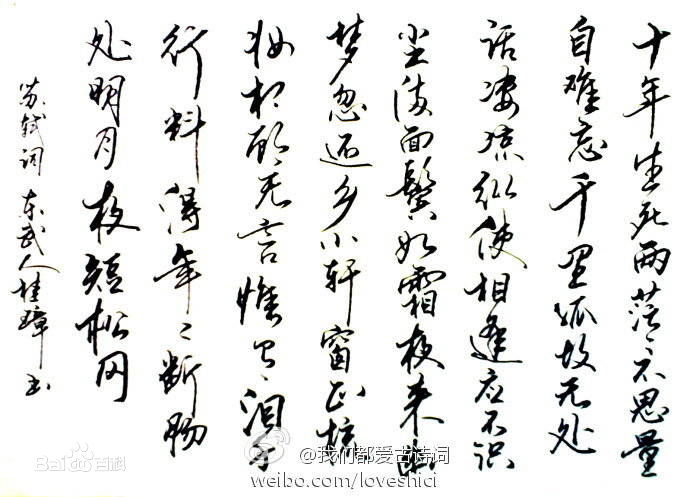 十年生死两茫〻不思量
自难忘千里孤坟无处
话凄凉纵使相逢应不识
尘满面鬓如霜夜来幽
梦忽还乡小轩窗正梳
妆相顾无言惟有泪千
行料得年〻断肠
处明月夜短松冈
苏轼词 东武人桂璋书
Bai百科
@我们都爱古诗词
weibo.com/loveshici